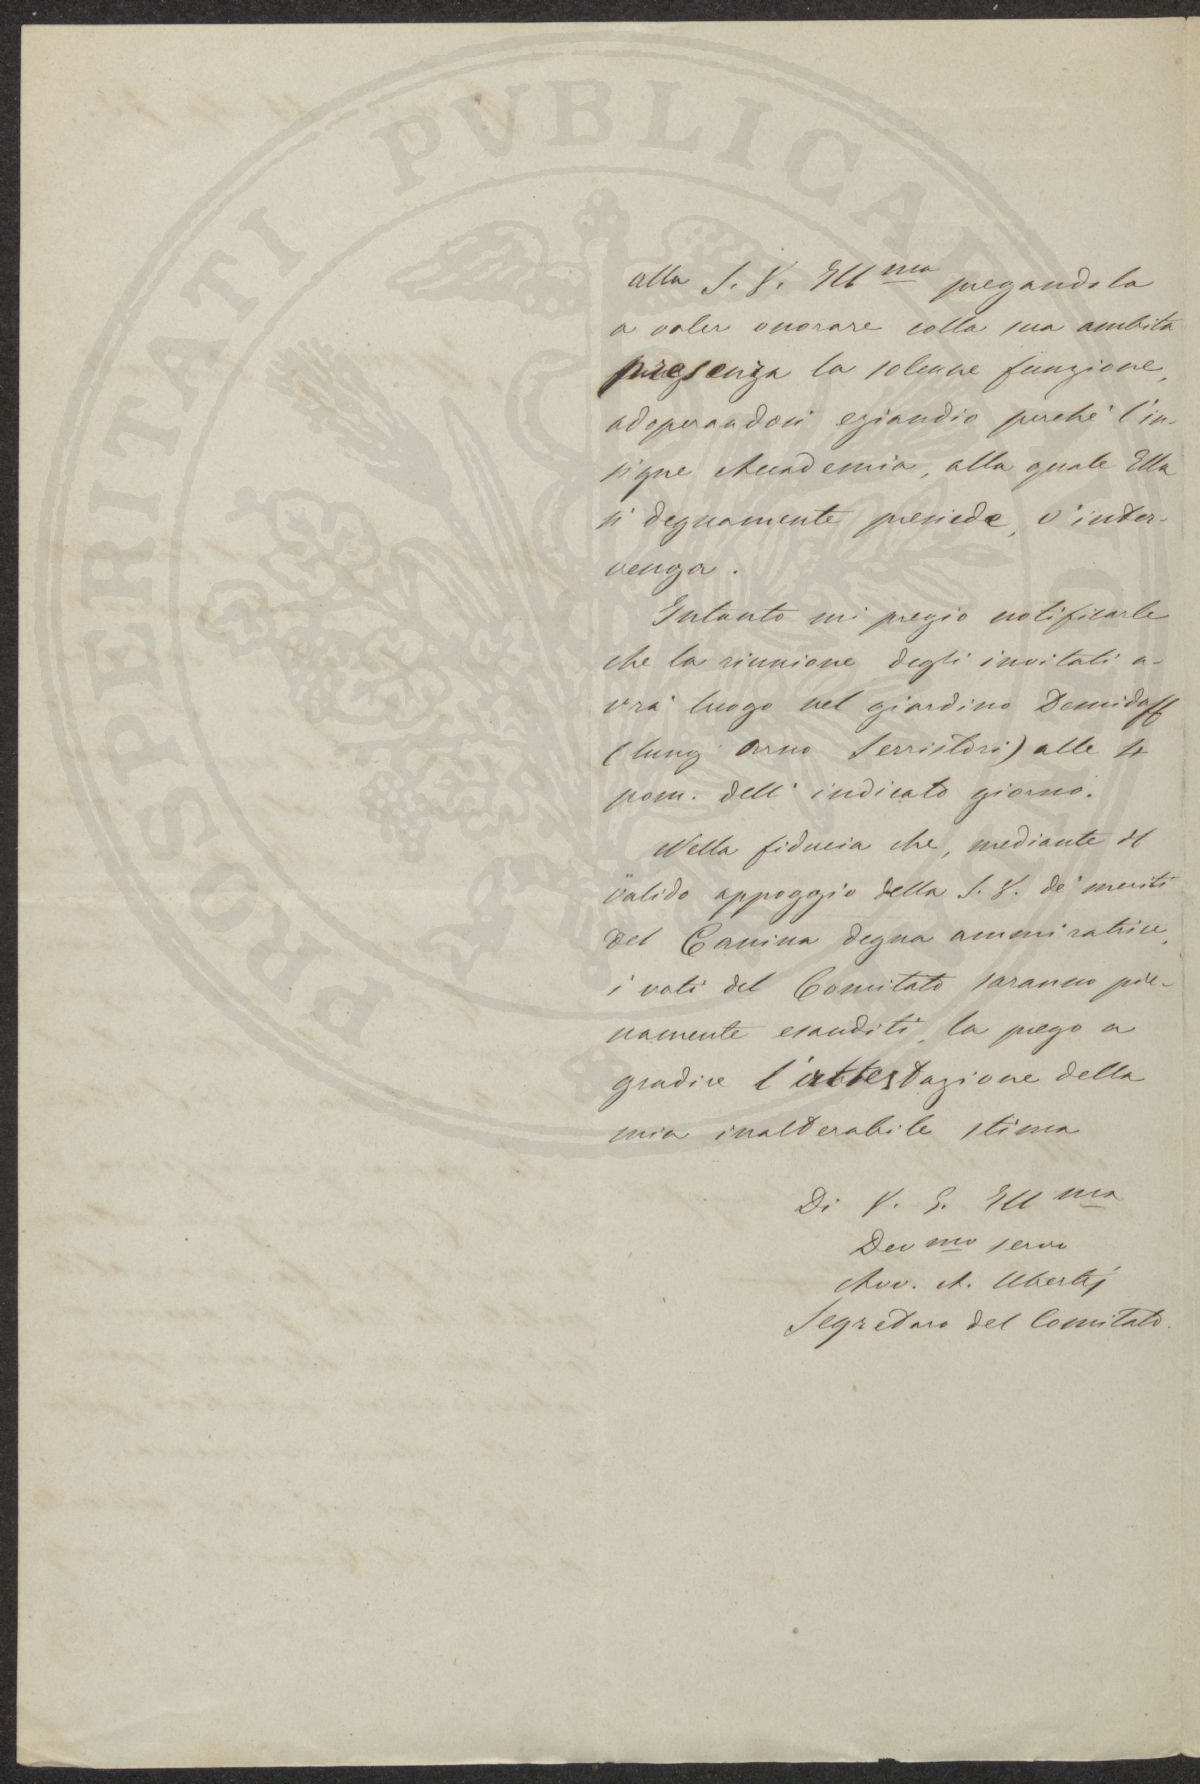 PROSPERITATI PUBLICAE
alla S. V. Ill ma pregandola
a voler onorare colla sua ambita
presenza la solenne funzione,
adoperandosi eziandio perchè l'in-
signe Accademia, alla quale Ella
sì degnamente presiede, v'inter-
venga.
Intanto mi pregio notificarle
che la riunione degli invitati a-
vrà luogo nel giardino Demidoff
(lung' Arno Serristori) alle 4
pom. dell' indicato giorno.
Nella fiducia che, mediante il
valido appoggio della S. V. de' meriti
del Canina degna ammiratrice,
i voti del Comitato saranno pie-
namente esauditi, la prego a
gradire l'attestazione della
mia inalterabile stima
Di V. S. Ill ma
Dev mo servo
Avv. A. Ubertij
Segretaro del Comitato.